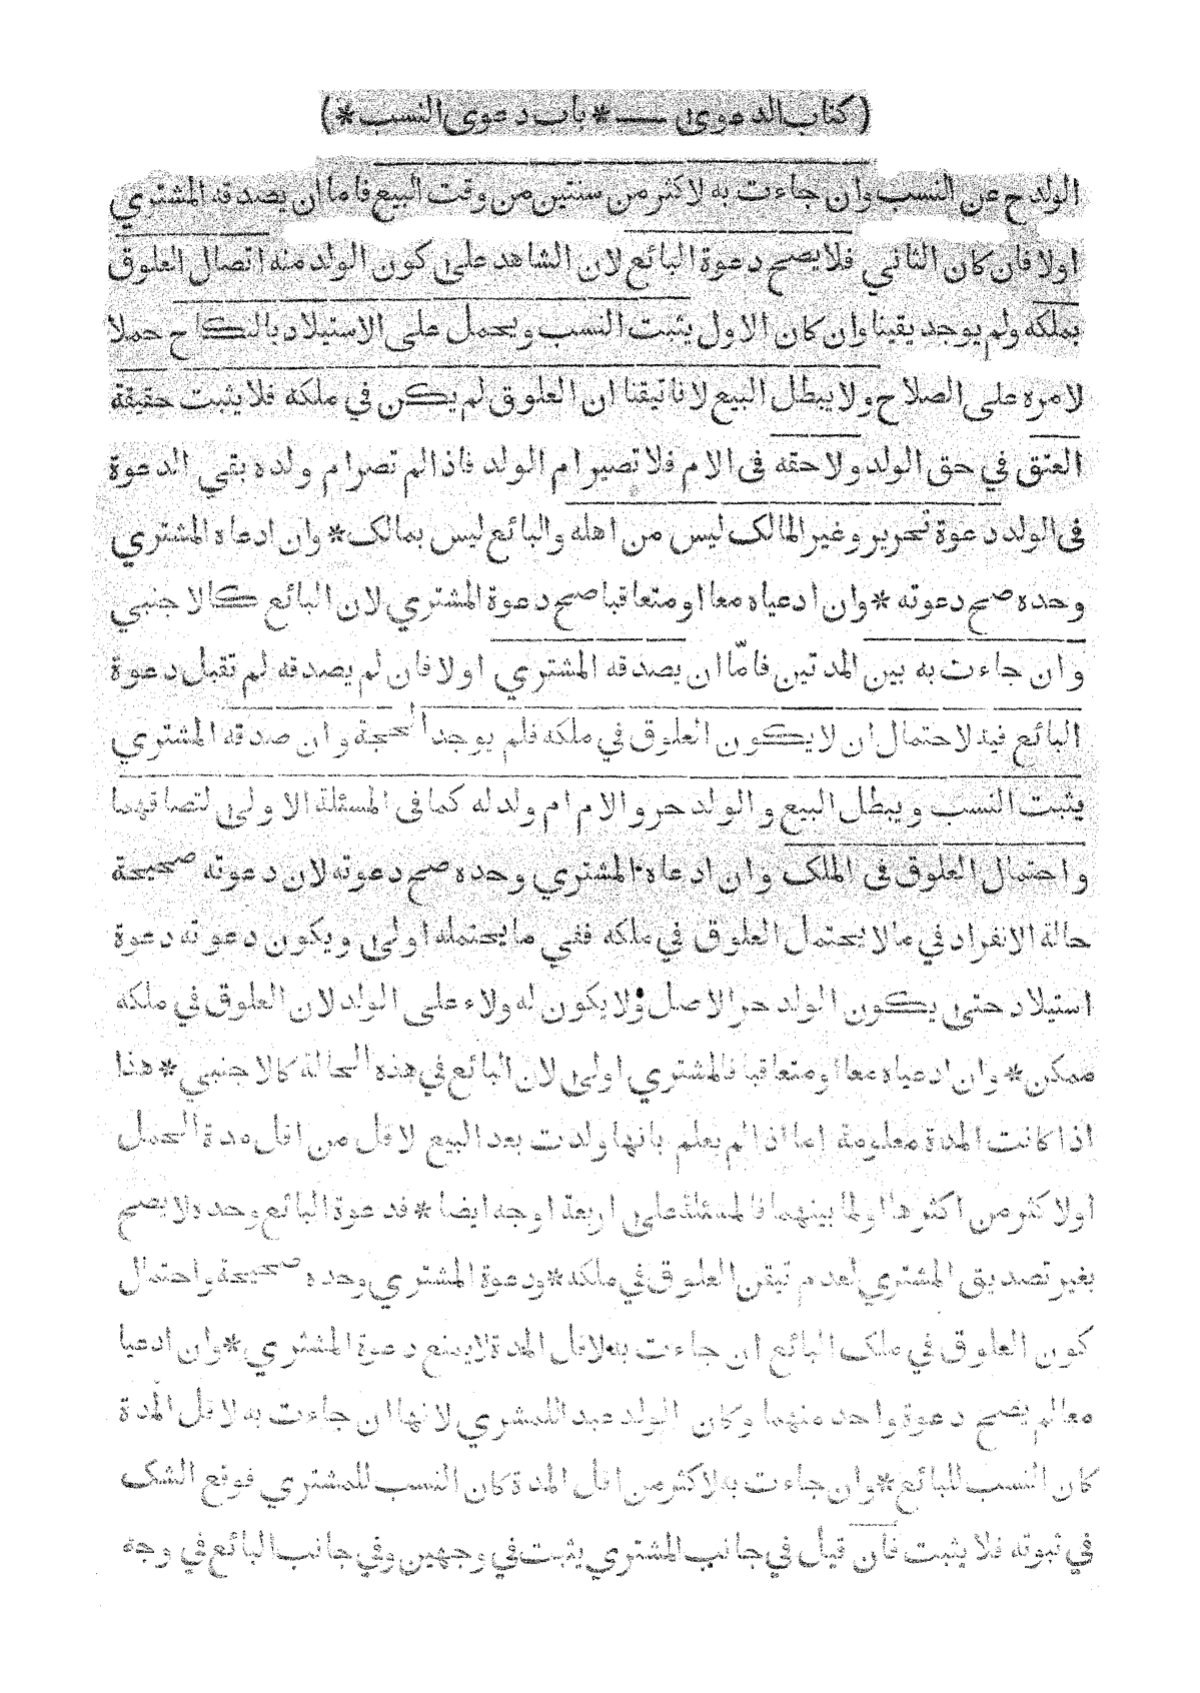 (كتاب الدعوى — * باب دعوى النسب *)
الولد ح عن النسب وان جاءت به لاكثر من سنتين من وقت البيع فاما ان يصدقه المشتري
اولا فان كان الثاني فلا يصح دعوة البائع لان الشاهد على كون الولد منه اتصال العلوق
بملكه ولم يوجد يقينا وان كان الاول يثبت النسب ويحمل على الاستيلاد بالنكاح حملا
لامره على الصلاح ولا يبطل البيع لانا تيقنا ان العلوق لم يكن في ملكه فلا يثبت حقيقة
العتق في حق الولد ولا حقه فى الام فلا تصير ام الولد فاذا لم تصر ام ولده بقي الدعوة
فى الولد دعوة تحرير وغير المالك ليس من اهله والبائع ليس بمالك * وان ادعاه المشتري
وحده صح دعوته * وان ادعياه معا او متعاقبا صح دعوة المشتري لان البائع كالاجنبي
وان جاءت به بين المدتين فامّا ان يصدقه المشتري اولا فان لم يصدقه لم تقبل دعوة
البائع فيه لاحتمال ان لا يكون العلوق في ملكه فلم يوجد الحجة وان صدقه المشتري
يثبت النسب ويبطل البيع والولد حر والام ام ولد له كما فى المسئلة الاولى لتصادقهما
واحتمال العلوق فى الملك وان ادعاه المشتري وحده صح دعوته لان دعوته صحيحة
حالة الانفراد في مالا يحتمل العلوق في ملكه ففي ما يحتمله اولى ويكون دعوته دعوة
استيلاد حتى يكون الولد حر الاصل ولا يكون له ولاء على الولد لان العلوق في ملكه
ممكن * وان ادعياه معا او متعاقبا فالمشتري اولى لان البائع في هذه الحالة كالاجنبي * هذا
اذا كانت المدة معلومة اما اذا لم يعلم بانها ولدت بعد البيع لاقل من اقل مدة الحمل
اولاكثر من اكثرها اولما بينهما فالمسئلة على اربعة اوجه ايضا * فدعوة البائع وحده لا يصح
بغير تصديق المشتري لعدم تيقن العلوق في ملكه * ودعوة المشتري وحده صحيحة واحتمال
كون العلوق في ملك البائع ان جاءت به لاقل المدة لا يمنع دعوة المشتري * وان ادعيا
معا لم يصح دعوة واحد منهما وكان الولد عبد اللمشري لانها ان جاءت به لاقل المدة
كان النسب للبائع * وان جاءت به لاكثر من اقل المدة كان النسب للمشتري فوقع الشك
في ثبوته فلا يثبت فان قيل في جانب المشتري يثبت في وجهين وفي جانب البائع في وجه